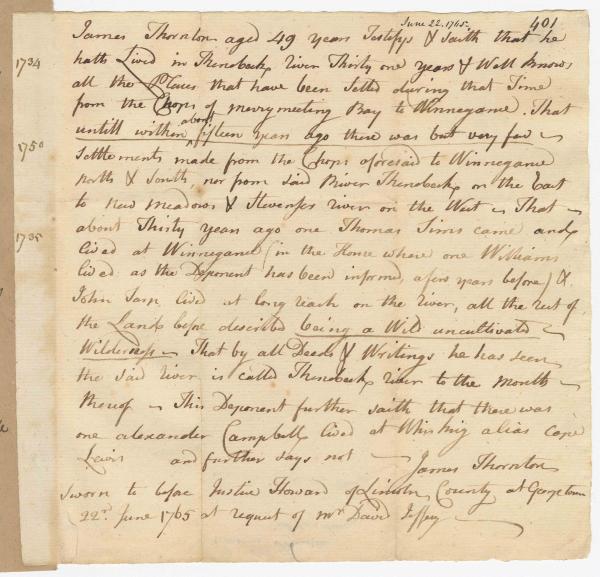 June 22. 1765.
401
James Thornton aged 49 years Testifys & Saith that he
hath Lived in Thenebeck River Thirty one years & Well knows
1734
all the Places that have been Setled during that Time
from the Chops of merrymeeting Bay to Winnegance. That
untill within about fifteen years ago there was but very few
1750
Settlements made from the Chops aforesaid to Winnegance
north & South, nor from Said River Thenebeck on the East
to new meadows & Stevenses river on the West - That
1735
about Thirty years ago one Thomas Sims came and
lived at Winnegance (in the House where one Williams
lived as the Deponent has been informed, a few years before) &
John lived at long reach on the river, all the rest of
the Land before described being a Wild uncultivated
Wilderness - That by all Deeds & Writings he has seen
the said river is called Thenebeck river to the Mouth
thereof - This Deponent further saith that there was
one alexander Campbell lived at Whiskig alias cape
Lewis and further says not
James Thornton
Sworn to before Justice Howard of Lincoln County at Georgetown
22d. June 1765 at request of Mr David Jeffery